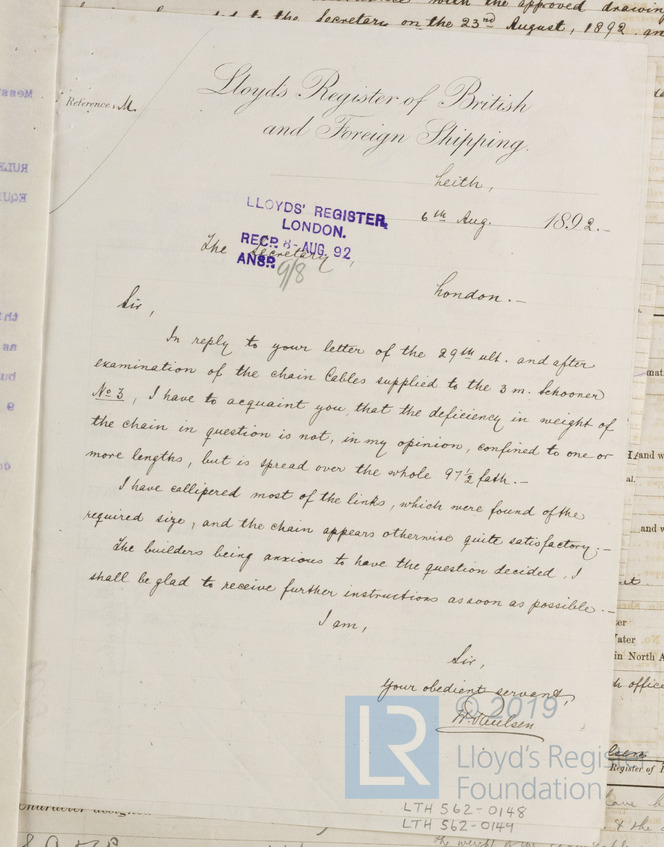 with the approved drawing
to the Secretary on the 23nd August, 1892. an
Reference, M.
Lloyds Register of British
and Foreign Shipping.
Leith,
6th Aug. 1892.-
LLOYDS' REGISTER,
LONDON.
RECD. 8-AUG. 92
ANSR. 9/8
The Secretary,
London.-
Sir,
In reply to your letter of the 29th ult. and after
examination of the chain Cables supplied to the 3 m. Schooner
No 3, I have to acquaint you, that the deficiency in weight of
the chain in question is not, in my opinion, confined to one or
more lengths, but is spread over the whole 97½ fath.-
I have callipered most of the links, which were found of the
required size, and the chain appears otherwise quite satisfactory;-
The builders being anxious to have the question decided, I
shall be glad to receive further instructions as soon as possible.-
I am,
Sir,
Your obedient servant,
W. Paulsen
© 2019
LR
Lloyd's Register
Foundation
LTH 562-0148
LTH 562-0149
mat
and w
al.
and w
ter
Vater
in North A
offic
Register of